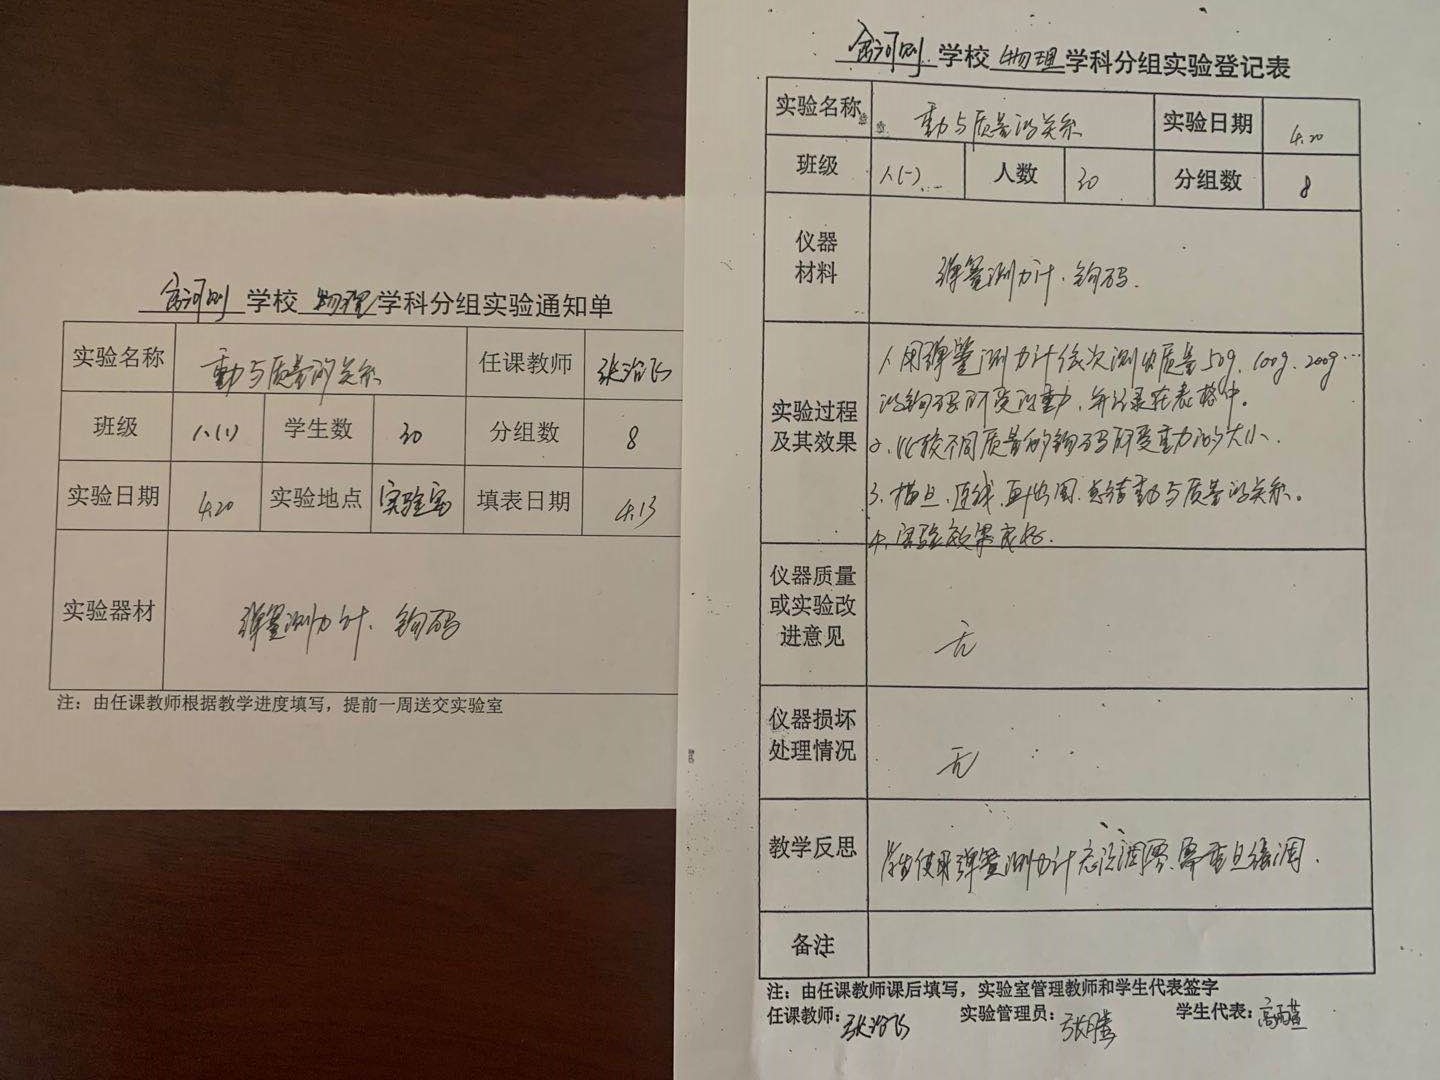 学校 物理 学科分组实验通知单
实验名称 重力与质量的关系 任课教师
班级 八(1) 学生数 30 分组数 8
实验日期 4.20 实验地点 实验室 填表日期 4.13
实验器材 弹簧测力计、钩码
注：由任课教师根据教学进度填写，提前一周送交实验室
学校 物理 学科分组实验登记表
实验名称 重力与质量的关系 实验日期 4.20
班级 八(一) 人数 30 分组数 8
仪器
材料
弹簧测力计、钩码.
实验过程
及其效果
1.用弹簧测力计依次测出质量50g、100g、200g…
的钩码所受的重力，并记录在表格中。
2.比较不同质量的钩码所受重力的大小.
3.描点、连线、画出图,总结重力与质量的关系。
4.实验效果良好.
仪器质量
或实验改
进意见
无
仪器损坏
处理情况
无
教学反思 学生使用弹簧测力计忘记调零、需重点强调.
备注
注：由任课教师课后填写，实验室管理教师和学生代表签字
任课教师: 实验管理员: 张腾 学生代表: